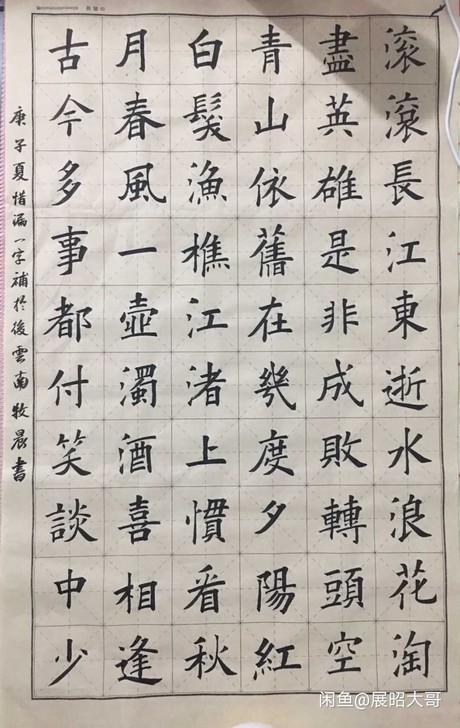 滚滾長江東逝水浪花淘
盡英雄是非成敗轉頭空
青山依舊在幾度夕陽紅
白髮漁樵江渚上慣看秋
月春風一壺濁酒喜相逢
古今多事都付笑談中少
庚子夏惜漏一字補於後雲南牧晨書
闲鱼@展昭大哥